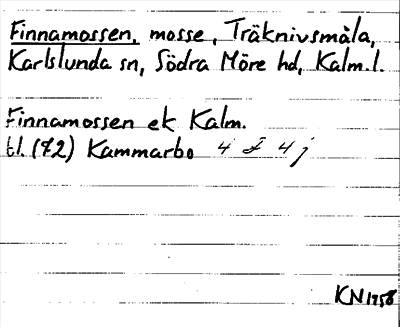 Finnamossen, mosse, Träknivsmåla,
Karlslunda sn, Södra Möre hd, Kalm.l.
Finnamossen ek Kalm.
bl. (72) Kammarbo 4 F 4 j
KN 1958